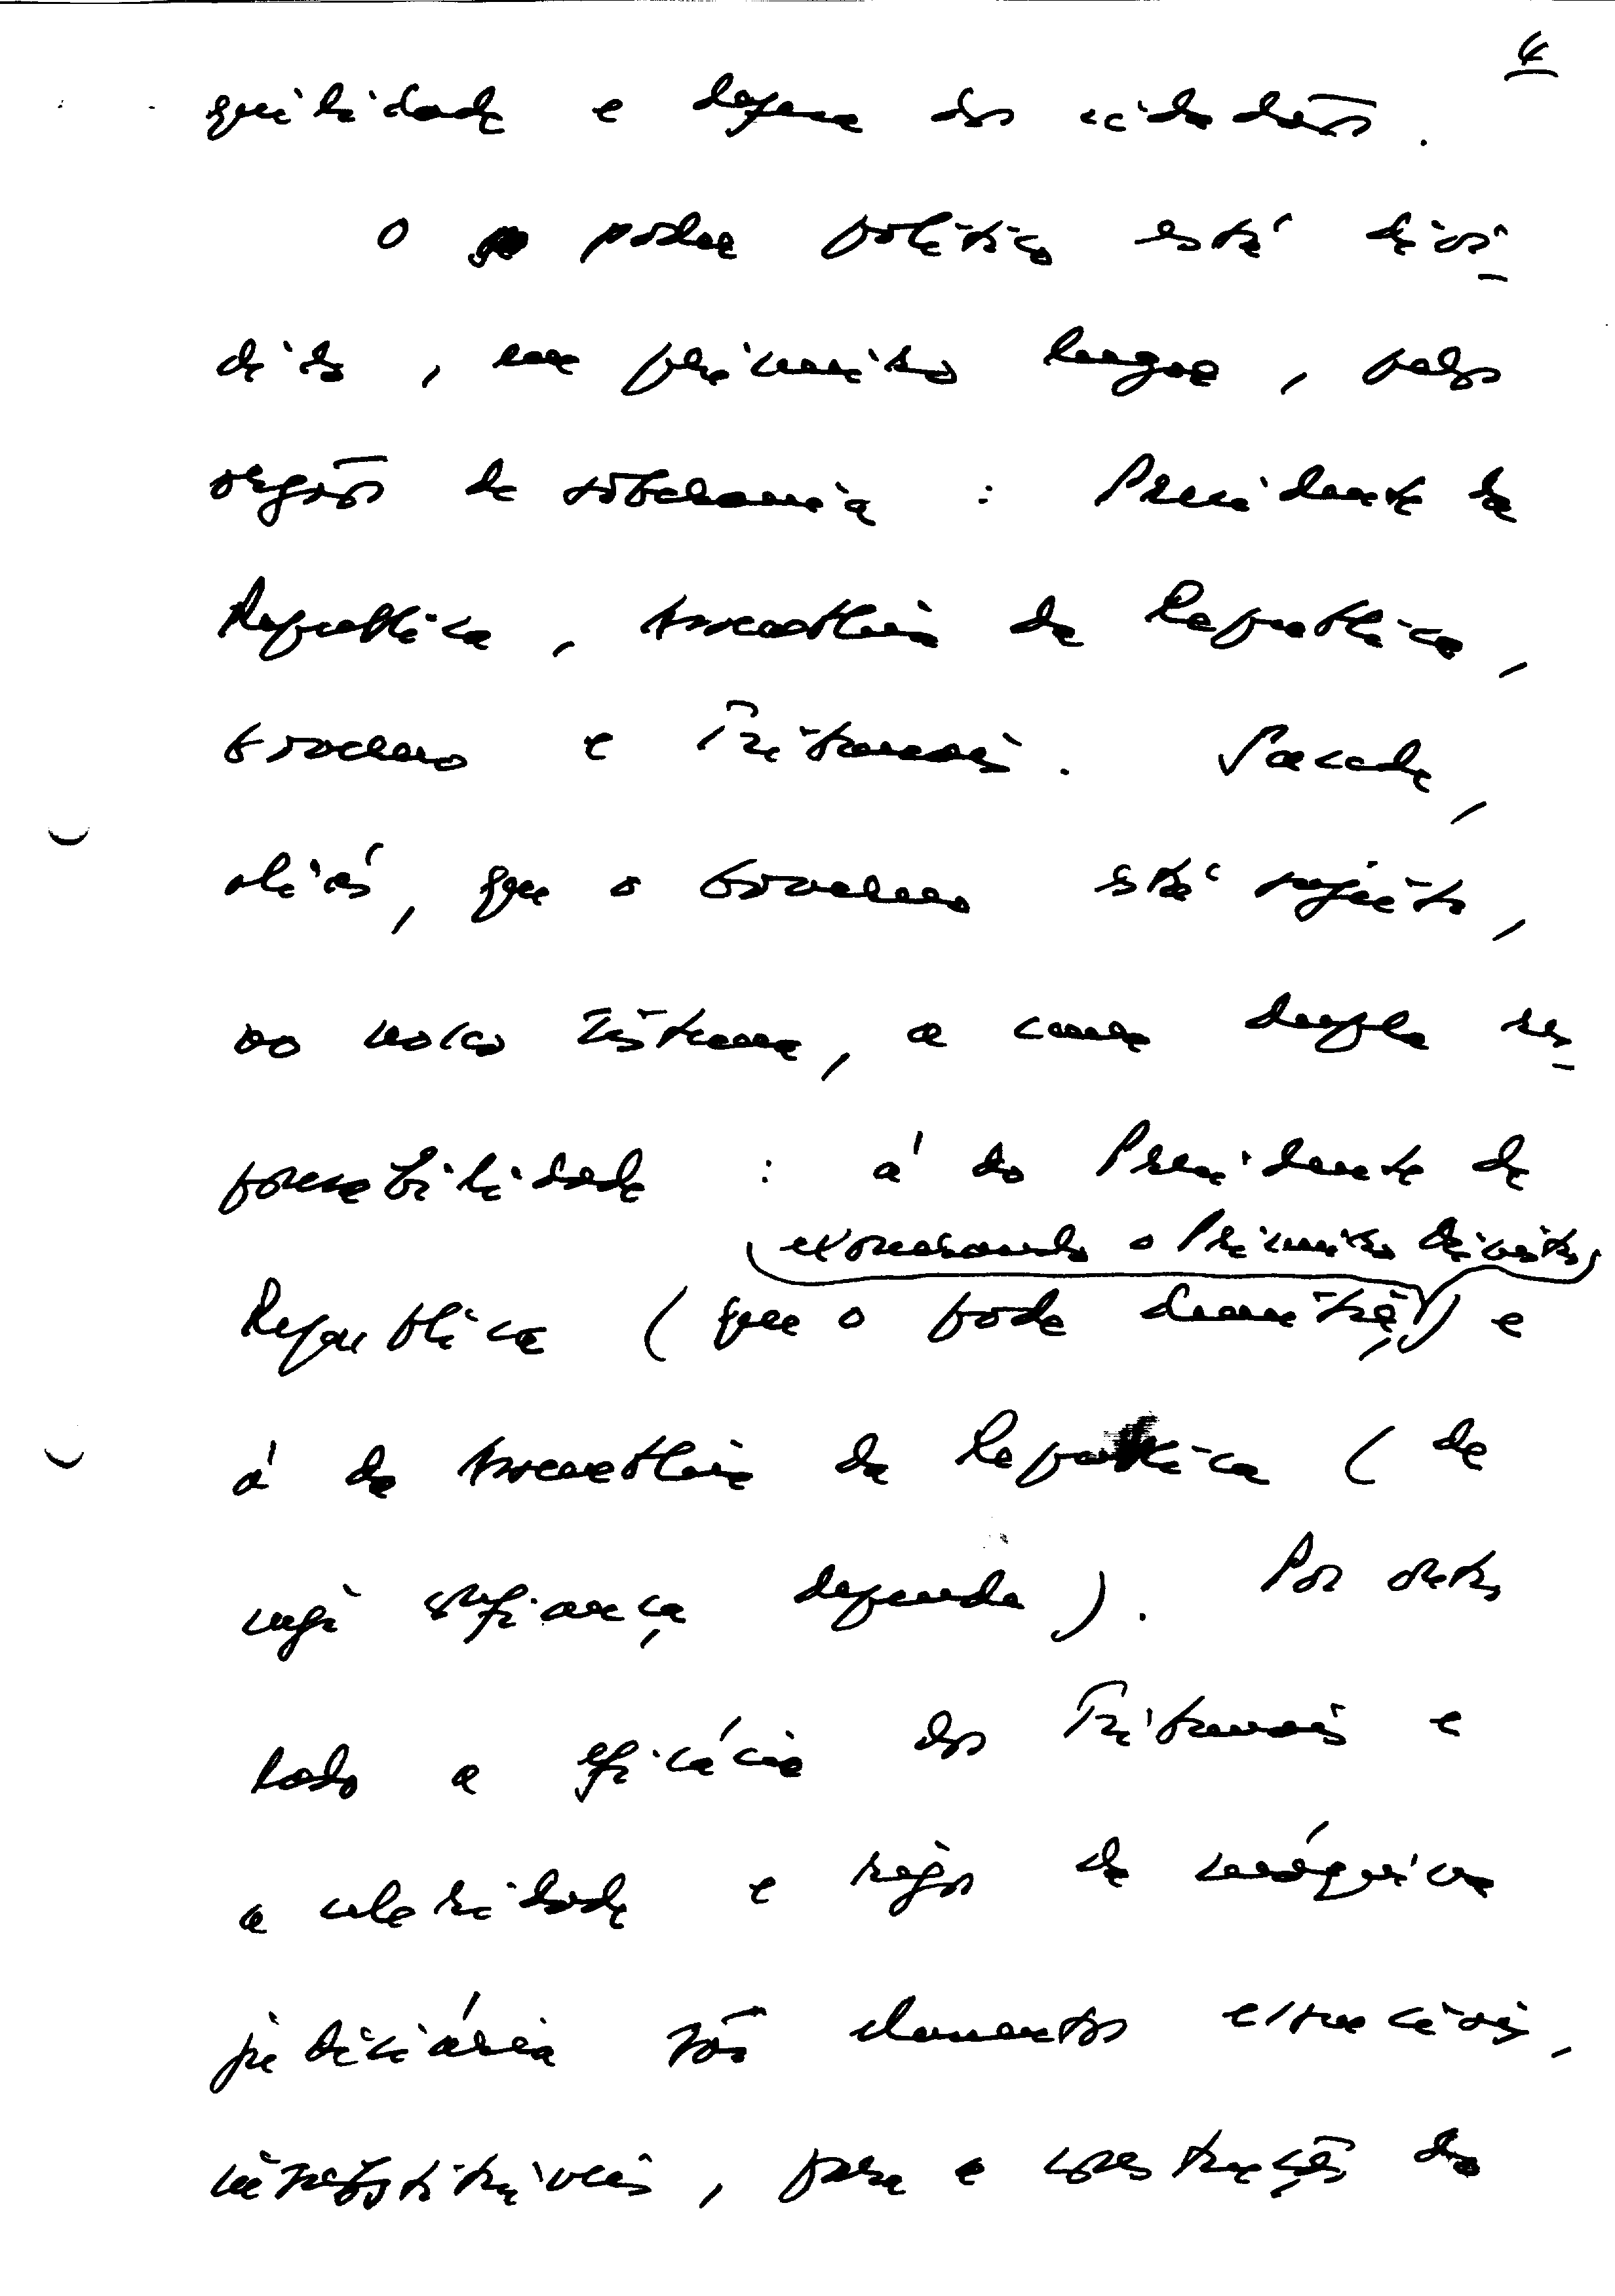 4
quilidade e defesa dos cidadãos.
O poder político está divi-
dido, em primeiro lugar, pelos
orgãos de soberania : Presidente da
Republica, Assembleia da Republica,
Governo e Tribunais. Sucede,
aliás, que o Governo está sujeito,
no nosso sistema, a uma dupla res-
ponsabilidade : á do Presidente da
exonerando o Primeiro Ministro
Republica (que o pode demitir,) e
á da Assembleia da Republica (de
cuja confiança depende). Por outro
lado a eficácia dos Tribunais e
a celeridade e rigor da máquina
judiciária são elementos essenciais,
insubstituíveis, para a construção do